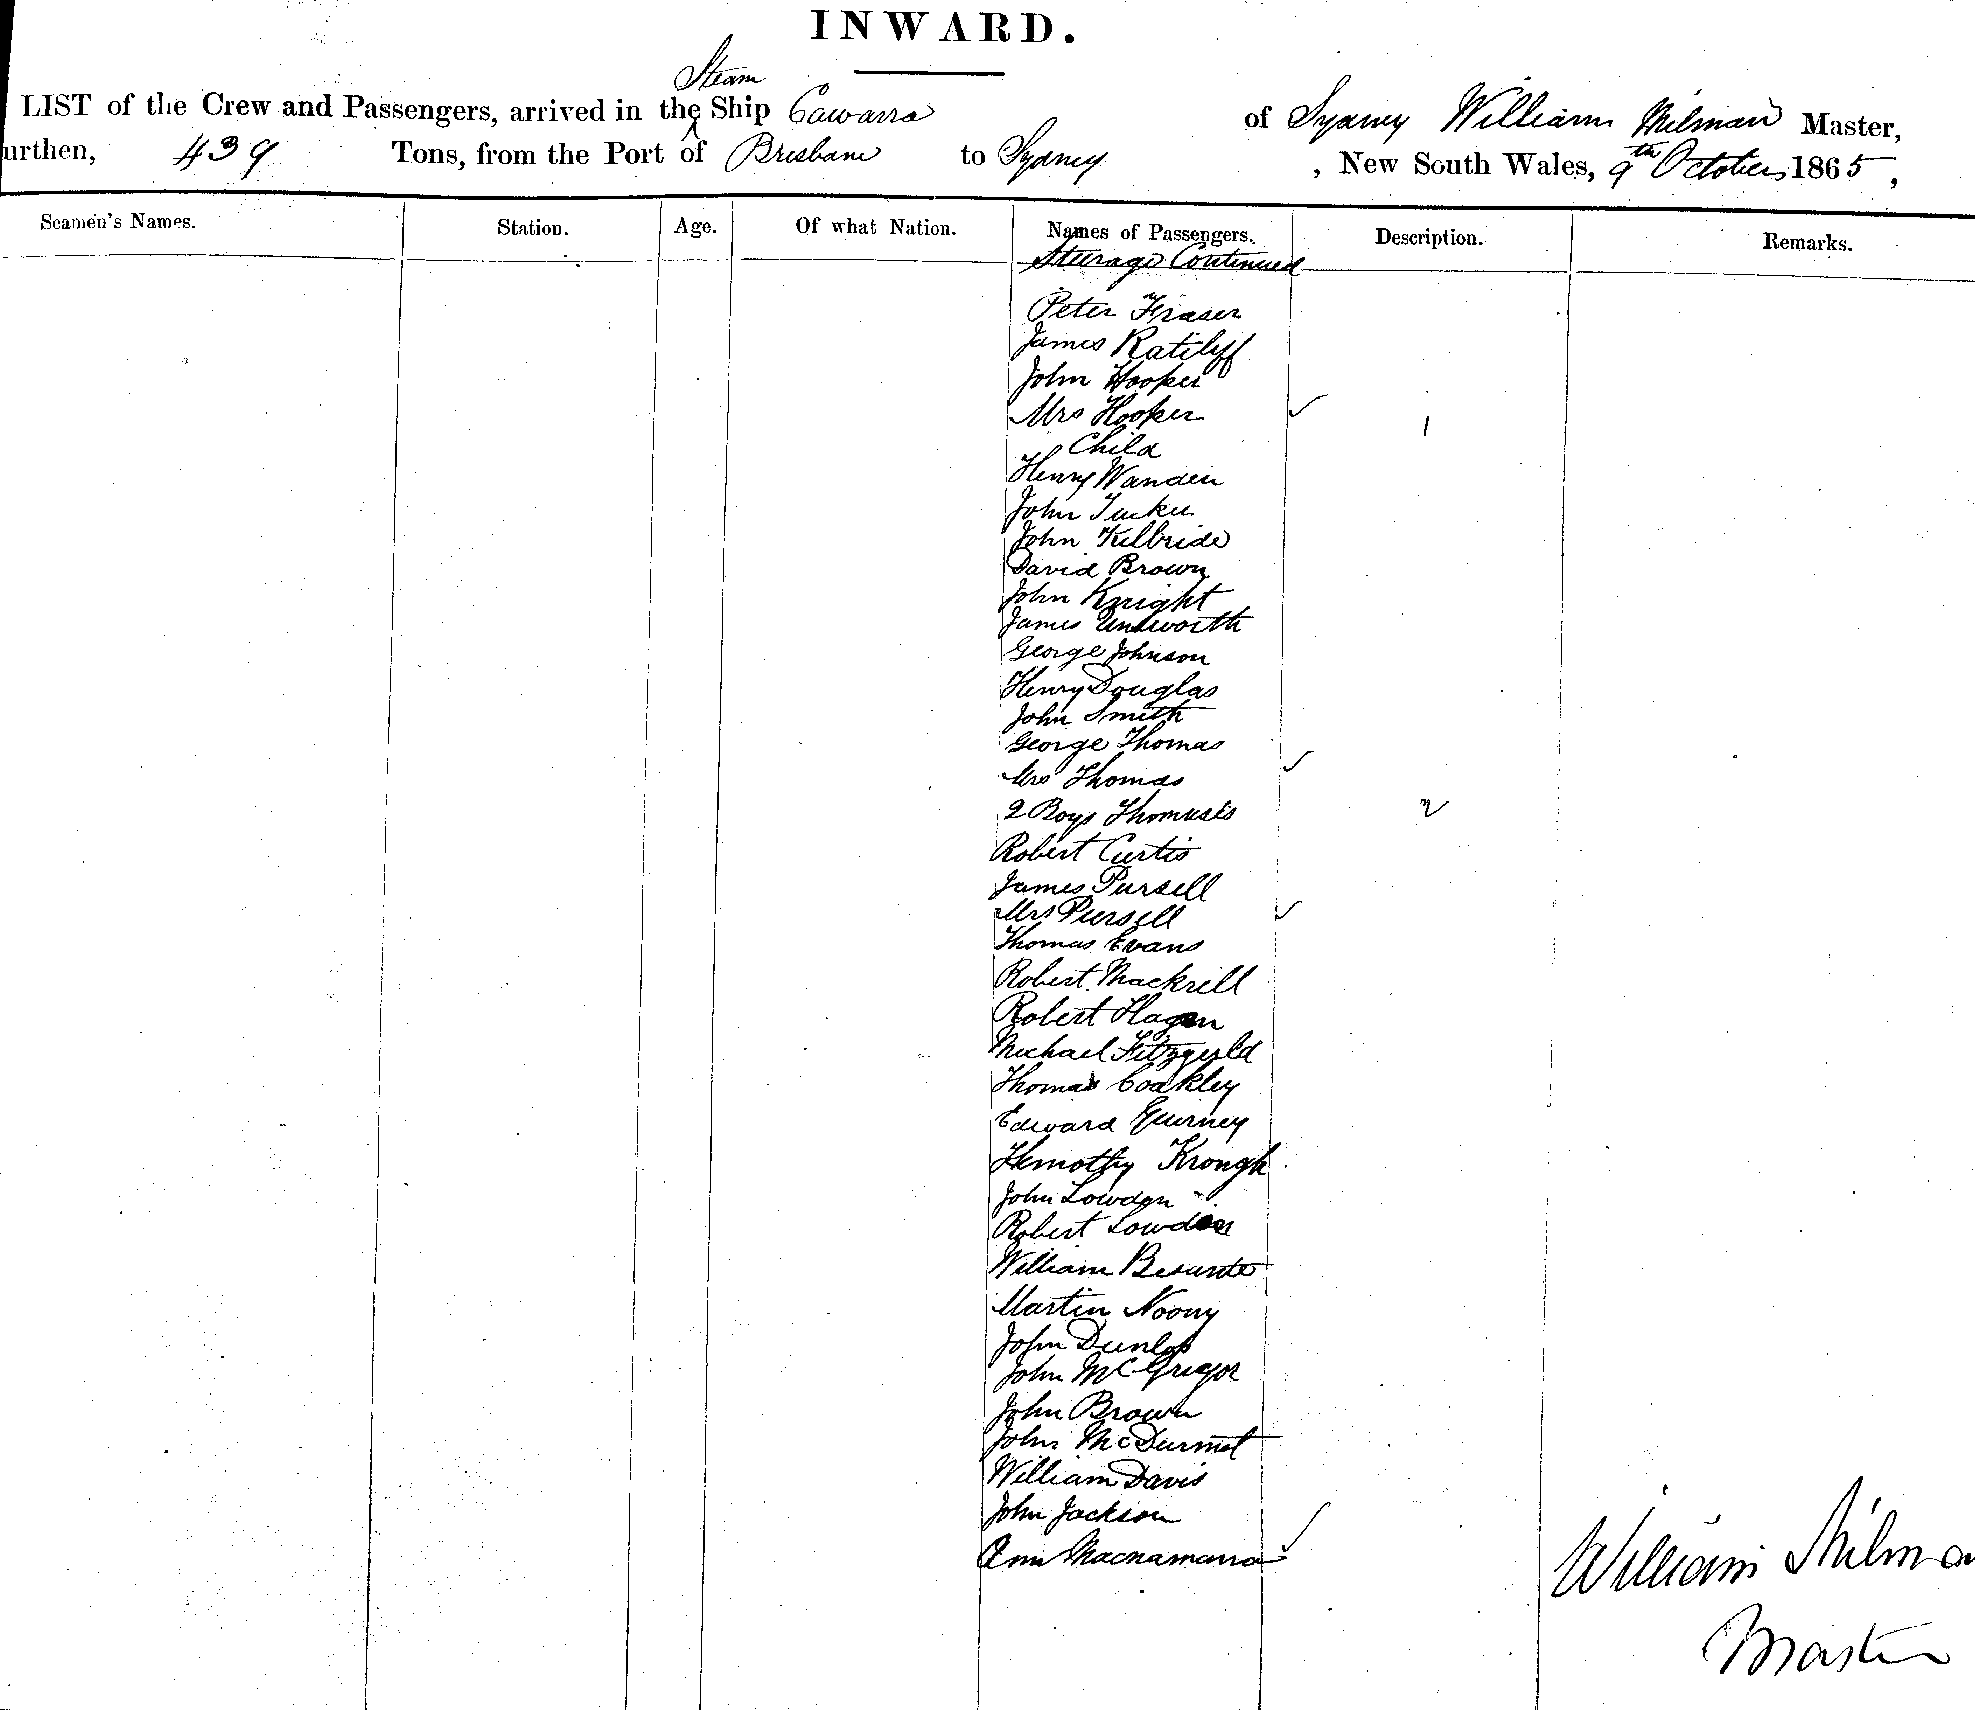 INWARD.
Steam
LIST of the Crew and Passengers, arrived in the Ship Cawarra of Sydney William Milman Master,
urthen, 439 Tons, from the Port of Brisbane to Sydney , New South Wales, 9th October 1865,
Seamen's Names. Station. Age. Of what Nation. Names of Passengers. Description. Remarks.
Steerage Continued
Peter Fraser
James Ratiliff
John Hooker
Mrs Hooker
1
Child
Henry Wanden
John Tucker
John Kilbride
David Brown
John Knight
James Unsworth
George Johnson
Henry Douglas
John Smith
George Thomas
Mrs Thomas
2 Boys Thomas's 2
Robert Curtis
James Pursell
Mrs Pursell
Thomas Evans
Robert Mackrell
Robert Hagen
Michael Fitzgerld
Thomas Coakley
Edward Gurney
Krough
John Lowden
Robert Lowden
William
Martin Noony
John Dunlop
John McGregor
John Brown
John McDurmot
William Davis
John Jackson
Ann Macnamarra
William Milma
Master